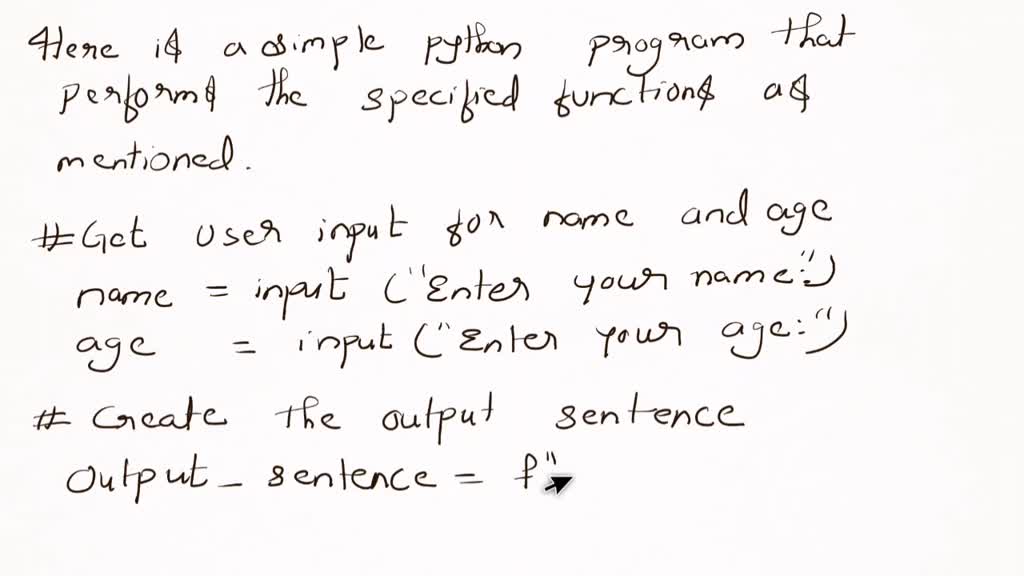 Here is a simple python program that
performs the specified functions as
mentioned.
#Get user input for name and age
name = input ("Enter your name:")
age = input ("Enter your age:")
# Create the output sentence
output_sentence = f"